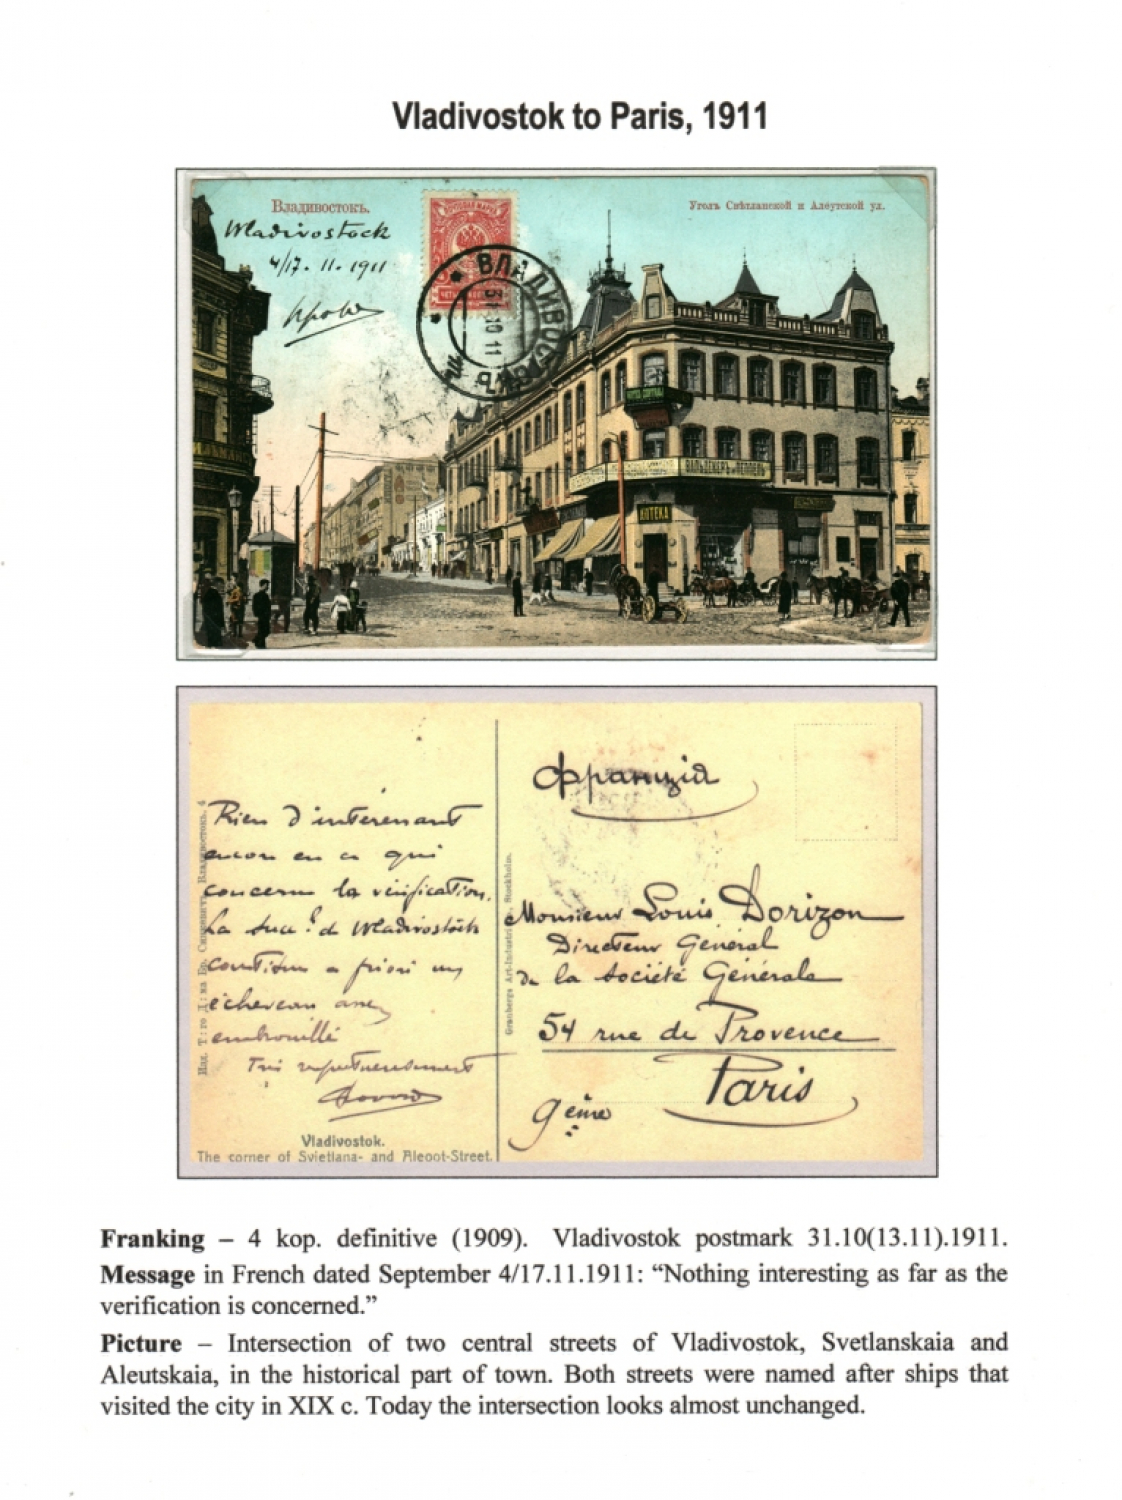 Vladivostok to Paris, 1911
Владивостокъ.
Уголъ Свѣтланской и Алеутской ул.
Wladivostock
4/17. 11. 1911
ПОЧТОВАЯ МАРКА
ВЛАДИВОСТОКЪ
АПТЕКА
Rien d'intéressant
encore en ce qui
concerne la vérification.
La succ.le de Wladivostock
constitue a priori un
écheveau assez
embrouillé
Très respectueusement
Vladivostok.
The corner of Svietlana- and Aleoot-Street.
Granbergs Art-Industri Stockholm.
Франція
Monsieur Louis Dorizon
Directeur Général
de la Société Générale
54 rue de Provence
Paris
9eme
Franking – 4 kop. definitive (1909). Vladivostok postmark 31.10(13.11).1911.
Message in French dated September 4/17.11.1911: “Nothing interesting as far as the
verification is concerned.”
Picture – Intersection of two central streets of Vladivostok, Svetlanskaia and
Aleutskaia, in the historical part of town. Both streets were named after ships that
visited the city in XIX c. Today the intersection looks almost unchanged.